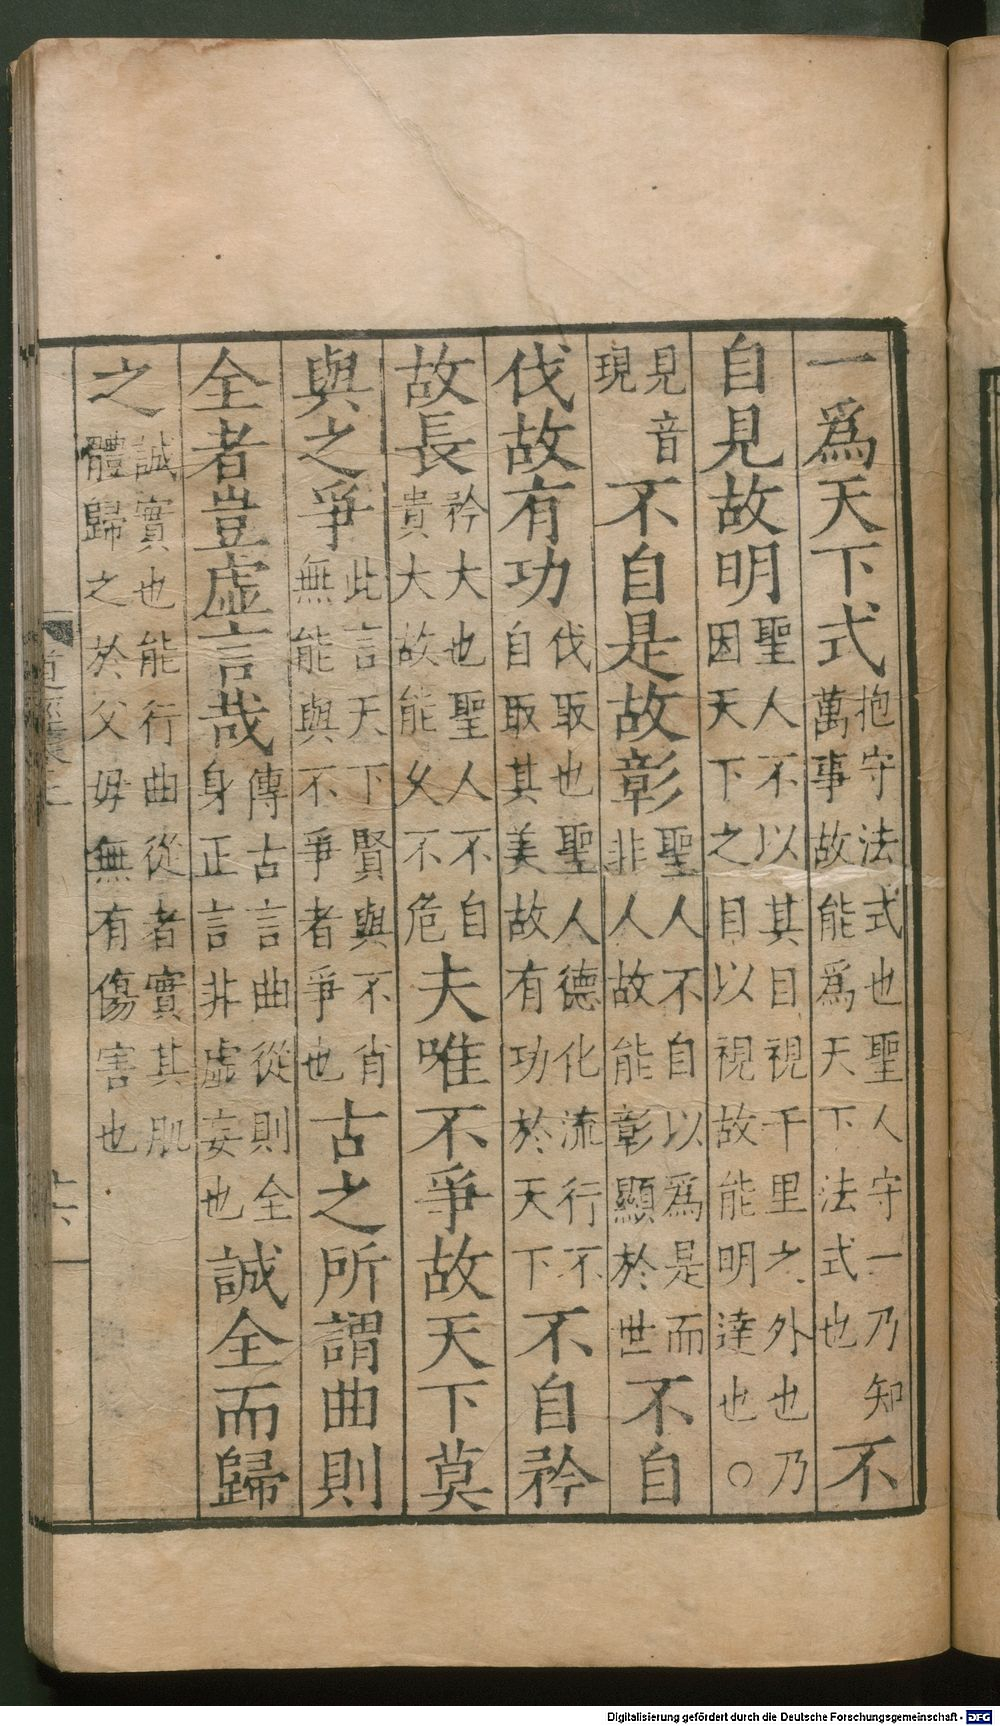 一爲天下式抱守法式也聖人守一乃知萬事故能爲天下法式也不
自見故明聖人不以其目視千里之外也乃因天下之目以視故能明達也○
見音現不自是故彰聖人不自以爲是而非人故能彰顯於世不自
伐故有功伐取也聖人德化流行不自取其美故有功於天下不自矜
故長矜大也聖人不自貴大故能乆不危夫唯不爭故天下莫
與之爭此言天下賢與不肖無能與不爭者爭也古之所謂曲則
全者豈虛言哉傳古言曲從則全身正言非虛妄也誠全而歸
之誠實也能行曲從者實其肌體歸之於父母無有傷害也
Digitalisierung gefördert durch die Deutsche Forschungsgemeinschaft - DFG